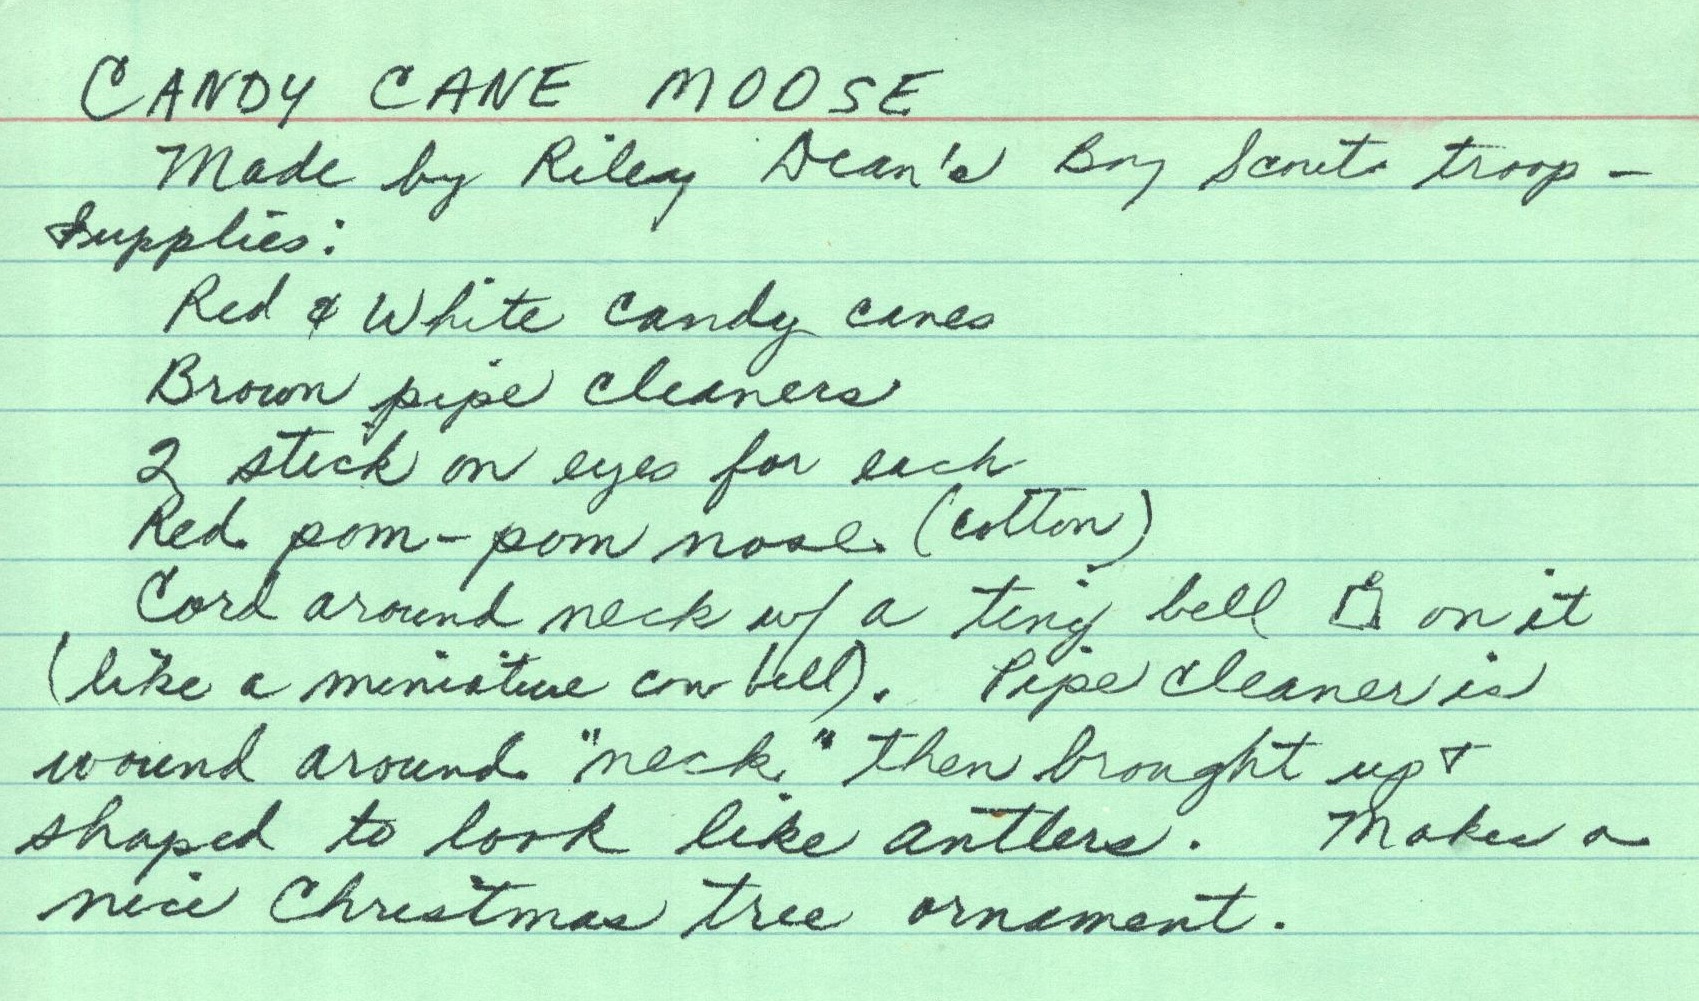 CANDY CANE MOOSE
Made by Riley Dean's Boy Scouts troop -
Supplies:
Red & White candy canes
Brown pipe cleaners
2 stick on eyes for each
Red pom-pom nose (cotton)
Cord around neck w/ a tiny bell on it
(like a miniature cow bell). Pipe cleaner is
wound around "neck" then brought up &
shaped to look like antlers. Makes a
nice Christmas tree ornament.